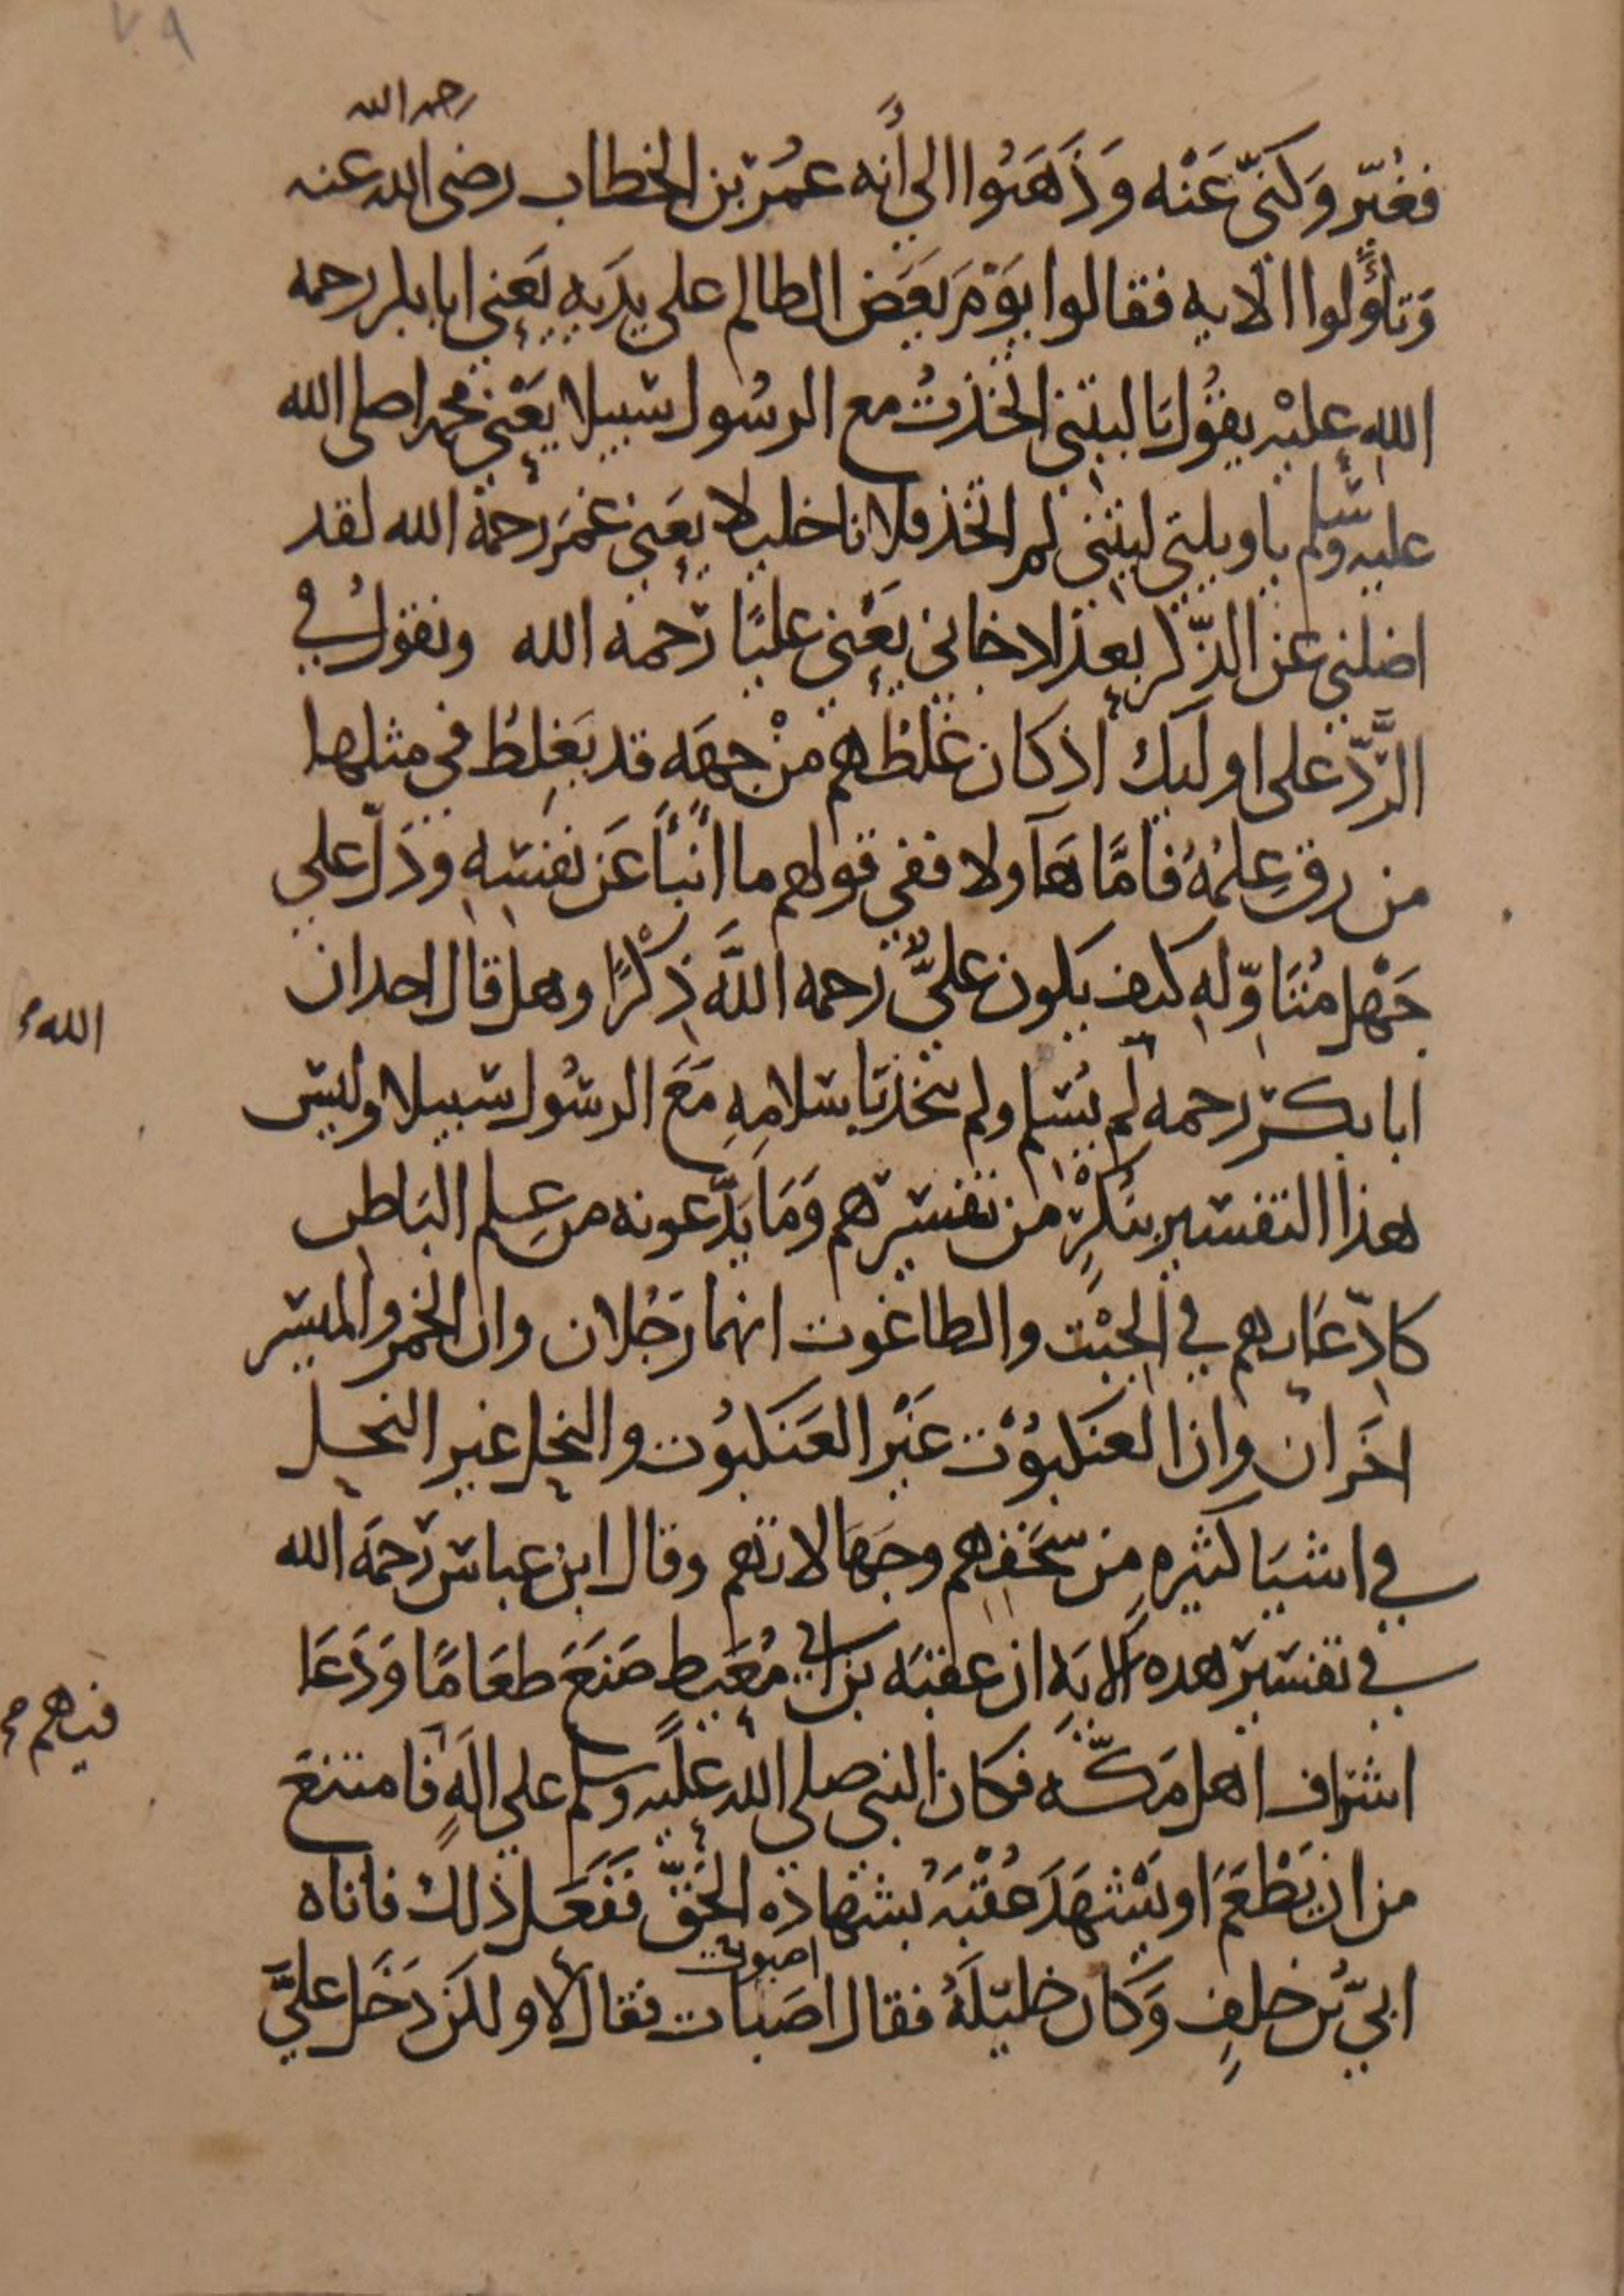 ٧٩
رحمه الله
فغُيّر وَكنّي عَنْه وَذَهَبُوا الى أنه عمُر بن الخطاب رضي الله عنه
وَتأوَّلوا الايه فقالوا يَوْمَ يَعَض الظالم على يدَيهِ يَعني ابا بكر رحمه
اللهِ عليْه يقوُل يَا ليتني اتخذتُ مع الرسُول سبيلا يعَني محمدا صلى الله
عليه وسلم ياويلتى ليتني لم اتخذ فلانا خليلا يعَني عُمَر رحمهُ الله لقد
اضلني عن الذّكر بعد اذ جاني يَعْني عليًا رَحمه الله ونقول في
الرَّدّ على اوليك اذ كان غلطُهم منْ جهَه قد يَغلِطُ في مثلها
من رق عِلمُهُ فامَّا هَآولا ففي قولهم ما انْبَأ عَن نفسِه ودَلّ على
جَهْل مُتَاوّلهِ كيف يكون عليٌّ رحمه اللَّه ذِكْرًا وهل قال احد ان
الله
ابا بكر رحمه لم يُسلم ولم يتخذ باسلامِهِ مَعَ الرسُول سبيلا وليس
هذا التفسير بنُكِرْ من تفسيرهم وَمَا يَدَّعونه من عِلم البَاطِن
كادّعَايهم في الجِبْت والطاغوت انهما رَجُلان وان الخمر والميسر
اخَران وان العنكبوُت غَيْر العَنكبُوت والنحل غير النحل
في اشيَا كثيرهِ من سُخفهم وجَهَالاتهم وقال ابن عباس رَحمَه الله
في تفسير هده الايَه ان عقبَه بن ابي مُعَيط صَنَعَ طعَامًا وَدَعَا
اشراف اهل مَكّه فكان النبي صلى الله عليه وسلم على الَهٍ فامتنعَ
فيهم
من ان يَطْعَم اوَ يَشْهَدَ عُقْبَهُ بشهادَه الحَقّ فَفَعَل ذلك فاتاه
اصبوت
ابيّ بن خلفٍ وَكان خليَلهُ فقال اصَبات فقال لا ولكن دَخَل عليَّ